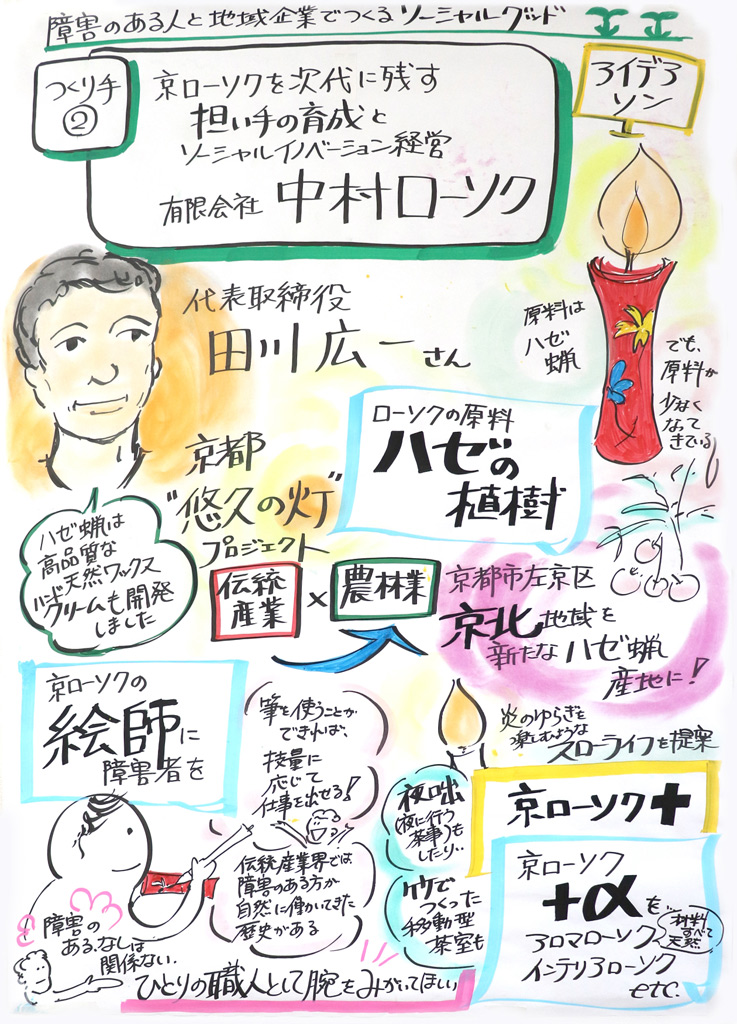 障害のある人と地域企業でつくるソーシャルグッド
つくり手
②
京ローソクを次代に残す
担い手の育成と
ソーシャルイノベーション経営
有限会社 中村ローソク
アイデア
ソン
代表取締役
田川広一さん
原料は
ハゼ
蝋
でも、
原料が
少なく
なって
きている
ローソクの原料
ハゼの
植樹
京都
"悠久の灯"
プロジェクト
ハゼ蝋は
高品質な
天然ワックス
ハードクリームも開発
しました
伝統
産業
×
農林業
京都市左京区
京北地域を
新たなハゼ蝋
産地に!
京ローソクの
絵師に
障害者を
筆を使うことが
できれば、
技量に
応じて
仕事を出せる!
伝統産業界では
障害のある方が
自然に働いてきた
歴史がある
障害の
ある、なしは
関係ない。
ひとりの職人として腕をみがいてほしい
炎のゆらぎを
楽しむような
スローライフを提案
夜咄
(夜に行う
茶事)も
したり…
竹で
つくった
移動型
茶室も
京ローソク+
京ローソク
+αを
アロマローソク
材料
すべて
天然
インテリアローソク
etc.